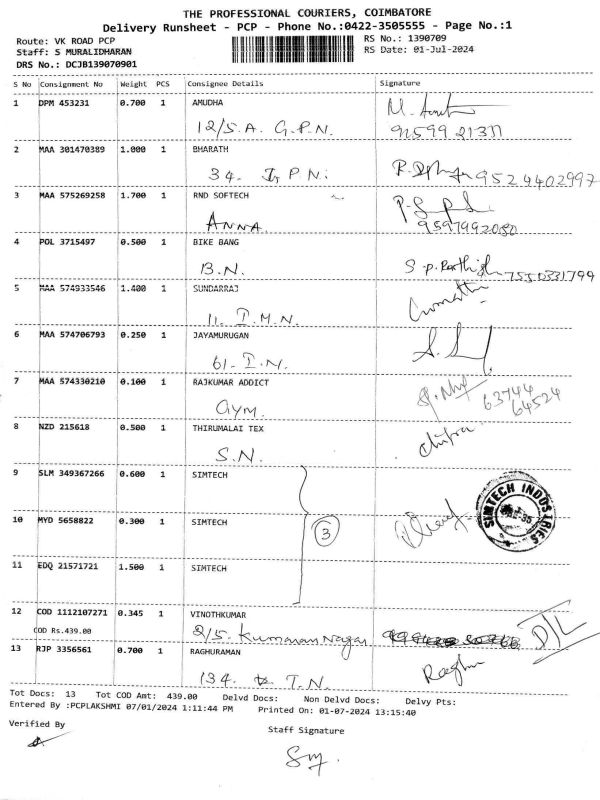 THE PROFESSIONAL COURIERS, COIMBATORE
Delivery Runsheet - PCP - Phone No.:0422-3505555 - Page No.:1
Route: VK ROAD PCP RS No.: 1390709
Staff: S MURALIDHARAN RS Date: 01-Jul-2024
DRS No.: DCJB139070901
S No Consignment No Weight PCS Consignee Details Signature
1 DPM 453231 0.700 1 AMUDHA
12/5.A. G.P.N. 91599 21311
2 MAA 301470389 1.000 1 BHARATH
34. P.N. 9524402997
3 MAA 575269258 1.700 1 RND SOFTECH
ANNA. 9597992080
4 POL 3715497 0.500 1 BIKE BANG
B.N. 7550331799
5 MAA 574933546 1.400 1 SUNDARRAJ
11. I.M.N.
6 MAA 574706793 0.250 1 JAYAMURUGAN
61. I.N.
7 MAA 574330210 0.100 1 RAJKUMAR ADDICT
Gym. 63744
64524
8 NZD 215618 0.500 1 THIRUMALAI TEX
S.N. chitra
9 SLM 349367266 0.600 1 SIMTECH
SIMTECH INDUSTRIES
10 MYD 5658822 0.300 1 SIMTECH
3
11 EDQ 21571721 1.500 1 SIMTECH
12 COD 1112107271 0.345 1 VINOTHKUMAR
COD Rs.439.00 2/5. Kumaran Nagar D/L
13 RJP 3356561 0.700 1 RAGHURAMAN
134. T.N. Raghu
Tot Docs: 13 Tot COD Amt: 439.00 Delvd Docs: Non Delvd Docs: Delvy Pts:
Entered By :PCPLAKSHMI 07/01/2024 1:11:44 PM Printed On: 01-07-2024 13:15:40
Verified By
Staff Signature